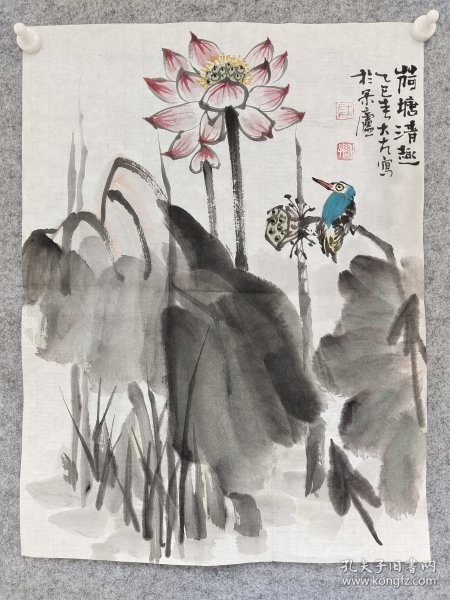 荷塘清趣
乙巳春大左寫
於某廬
孔夫子旧书网
www.kongfz.com